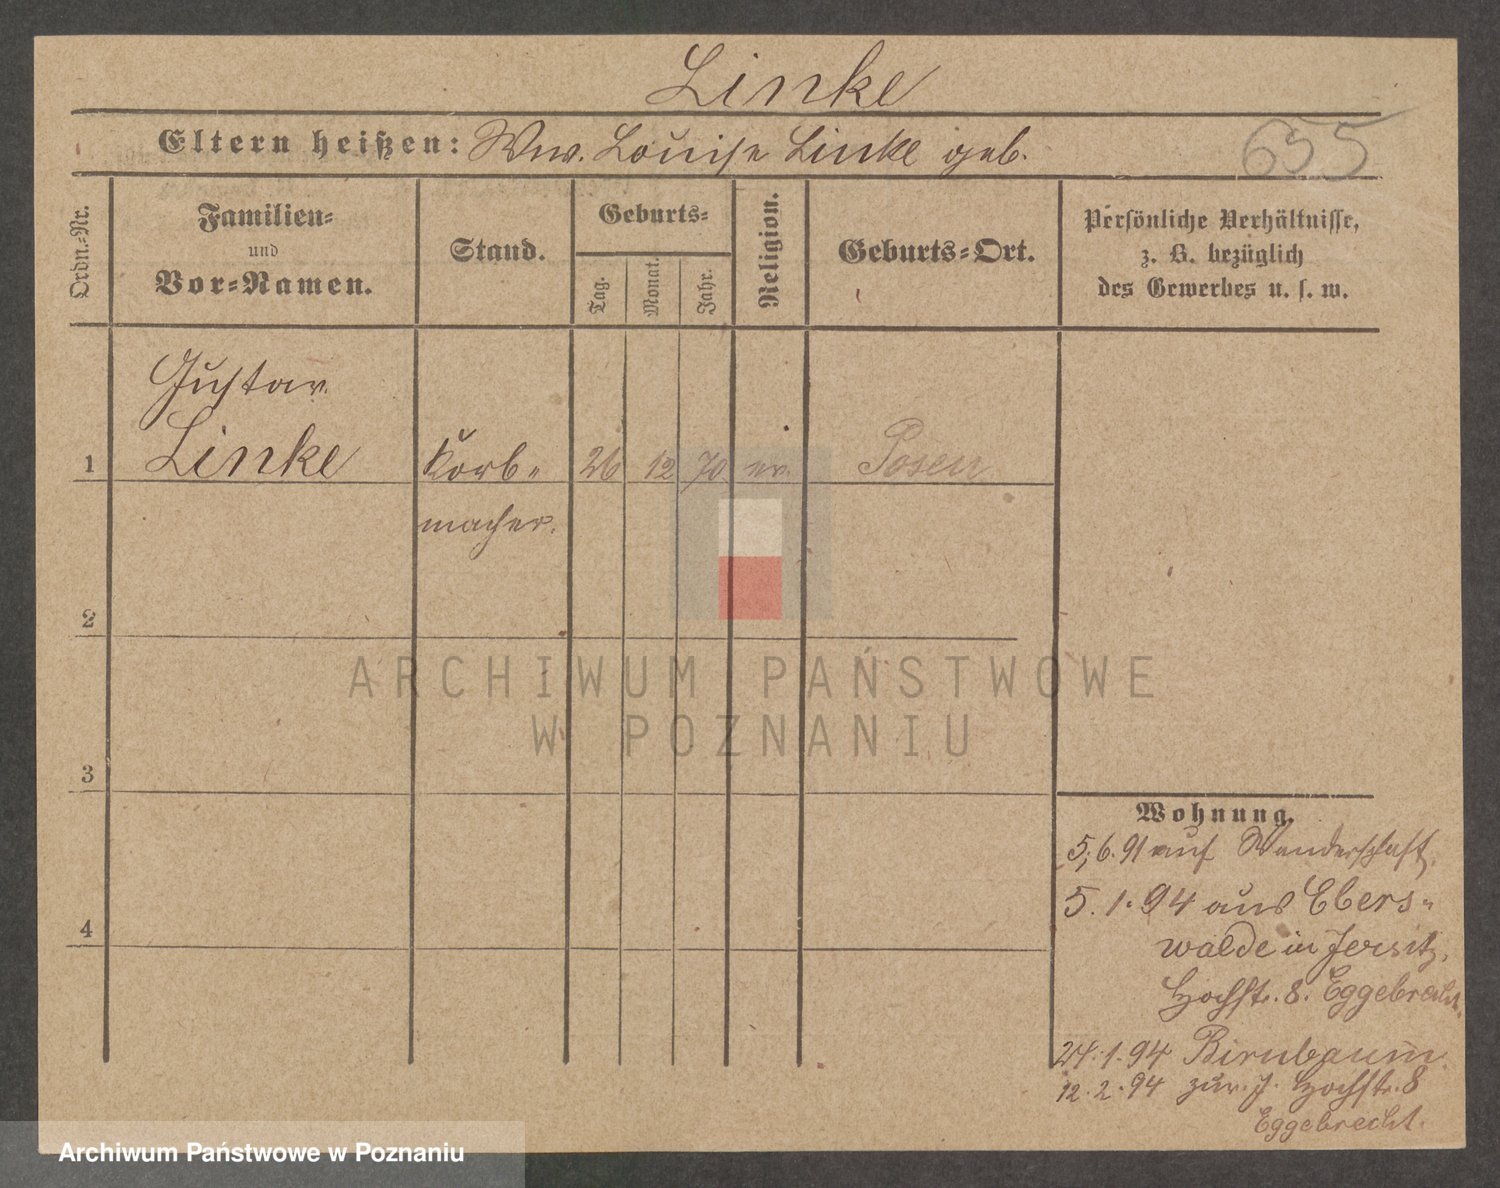 Linke
Eltern heißen: Wwe. Louise Linke geb.
655
Ordn.-Nr.
Familien-
und
Vor-Namen.
Stand.
Geburts-
Tag.
Monat.
Jahr.
Religion.
Geburts-Ort.
Persönliche Verhältnisse,
z. B. bezüglich
des Gewerbes u. s. w.
Gustav
1 Linke Korb- 26 12 70 ev. Posen
macher.
2
3
4
ARCHIWUM PAŃSTWOWE
W POZNANIU
Wohnung.
5.6.91 auf Wanderschaft.
5.1.94 aus Ebers-
walde in Jersitz,
Hochstr. 8. Eggebrecht.
24.1.94 Birnbaum.
12.2.94 zur. J. Hochstr. 8
Eggebrecht.
Archiwum Państwowe w Poznaniu